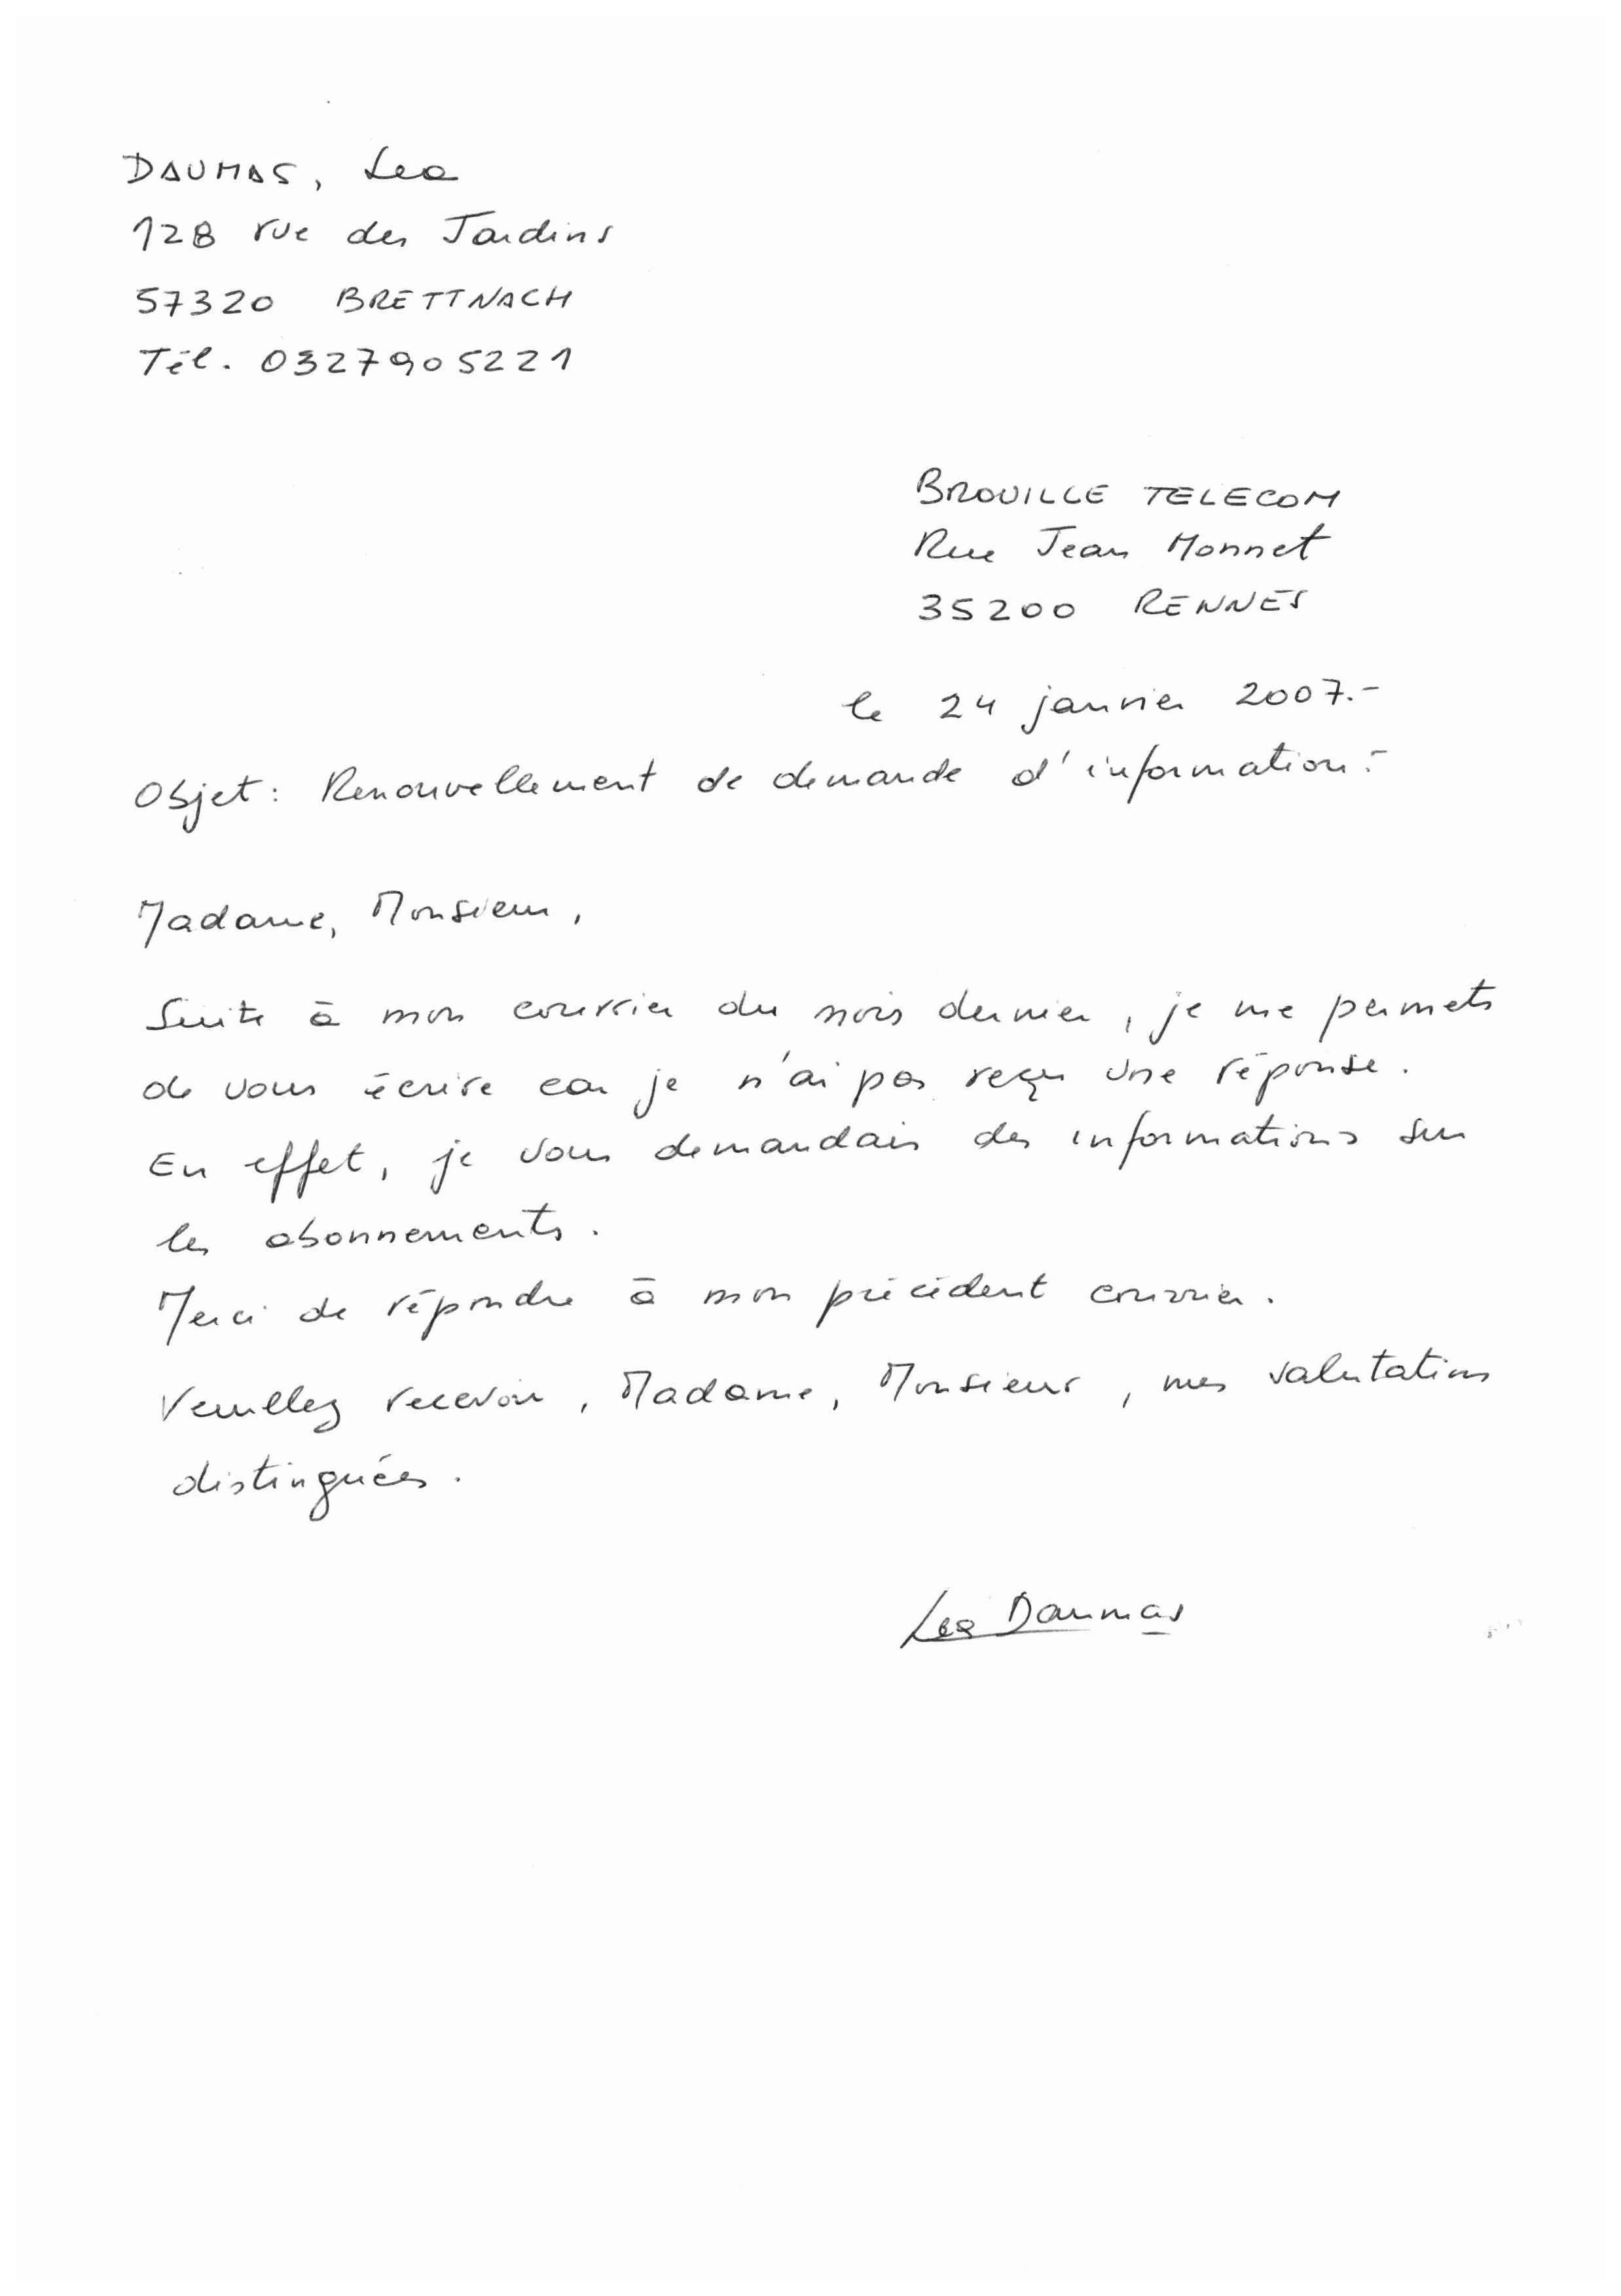 DAUMAS, Lea
128 rue des Jardins
57320 BRETTNACH
Tél. 0327905221
BROUILLE TELECOM
Rue Jean Monnet
35200 RENNES
le 24 janvier 2007.-
Objet : Renouvellement de demande d'information.-
Madame, Monsieur,
Suite à mon courrier du mois dernier, je me permets
de vous écrire car je n'ai pas reçu une réponse.
En effet, je vous demandais des informations sur
les abonnements.
Merci de répondre à mon précédent courrier.
Veuillez recevoir, Madame, Monsieur, mes salutations
distinguées.
Lea Daumas